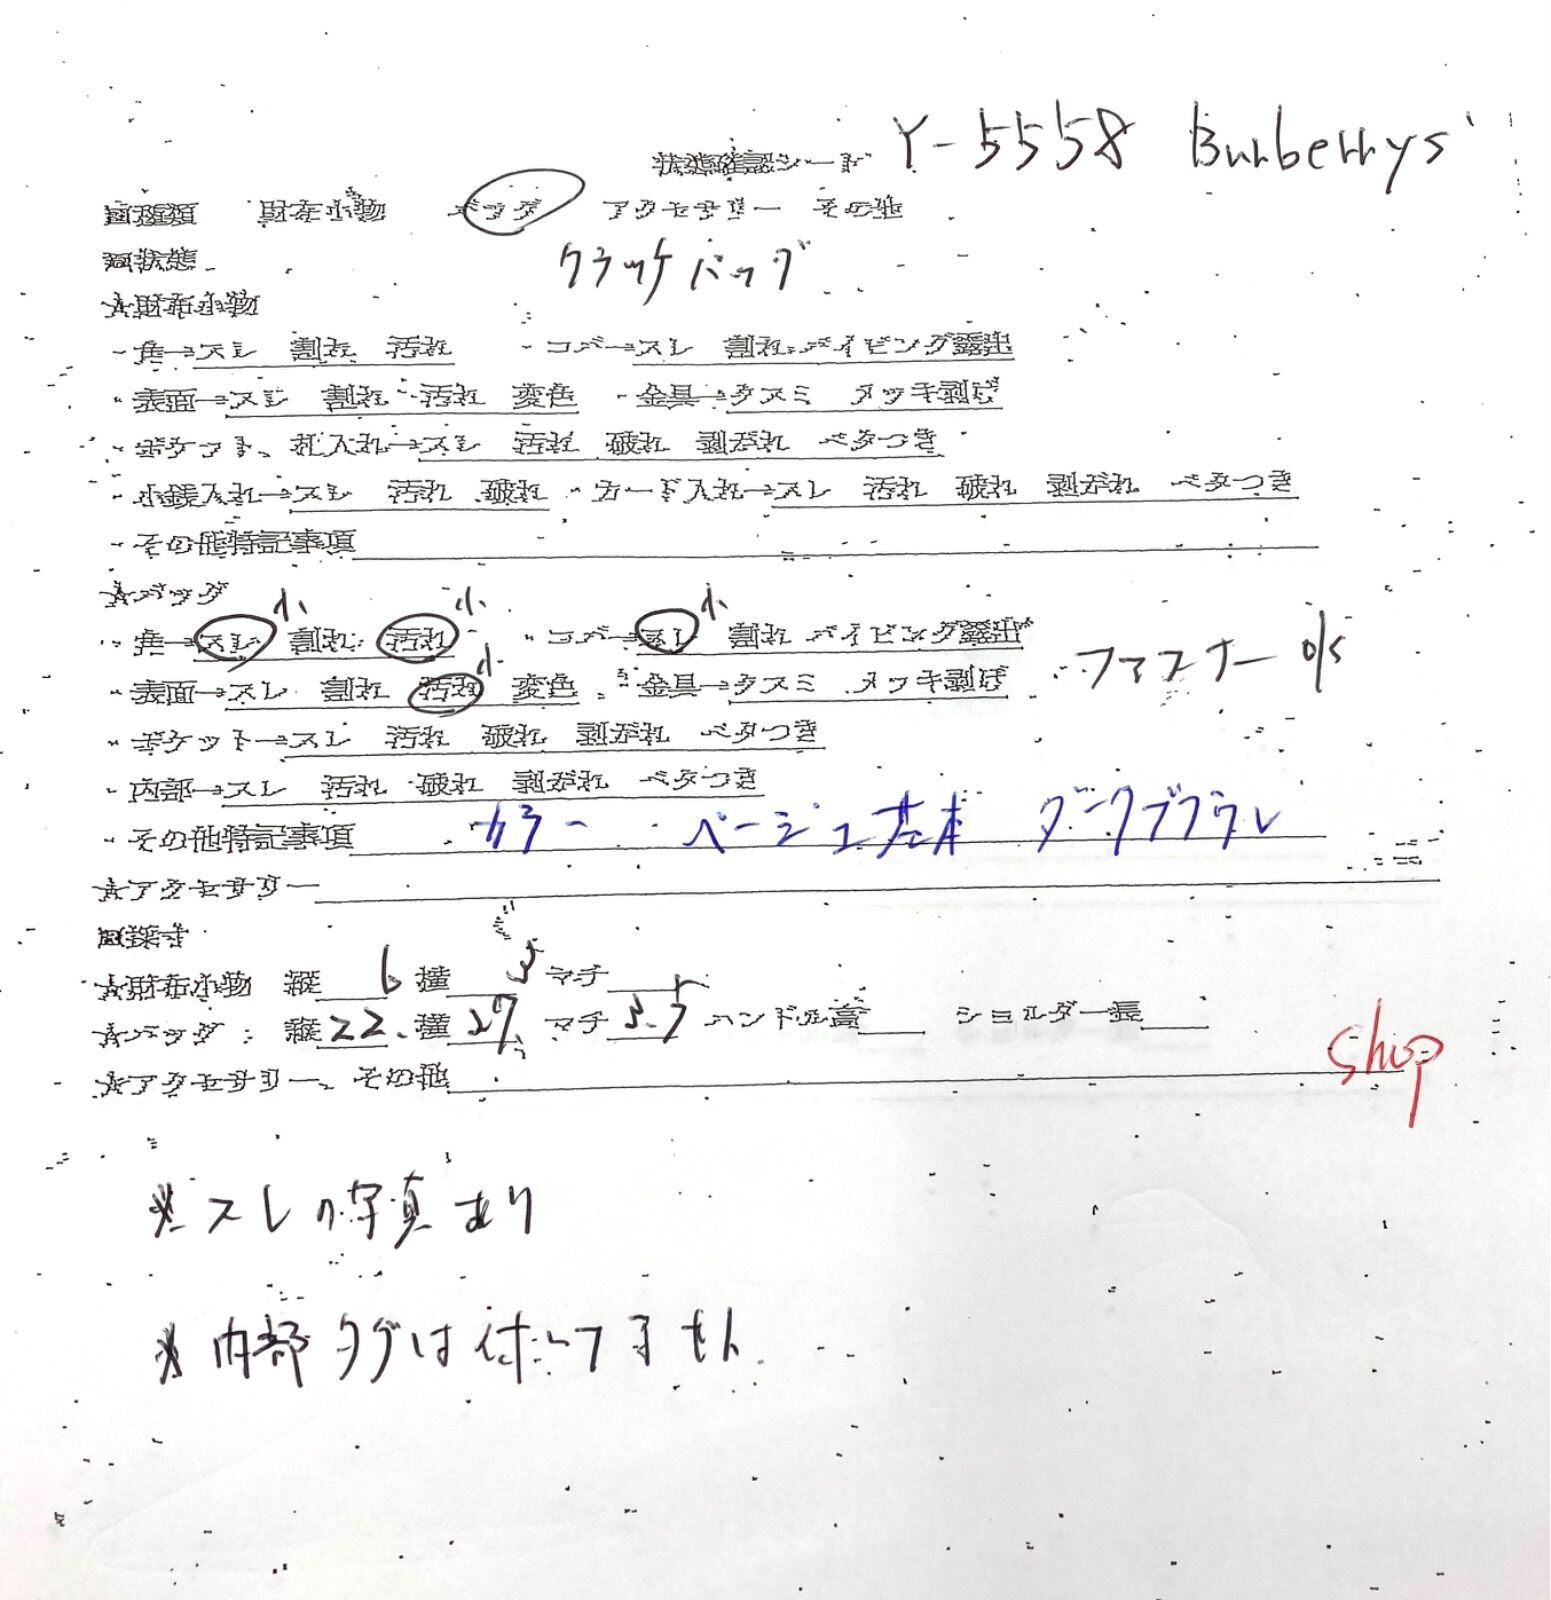 状態確認シート Y-5558 Burberrys
□種類 財布小物 バッグ アクセサリー その他
□状態 クラッチバッグ
☆財布小物
・角→スレ 割れ 汚れ ・コバ→スレ 割れ パイピング露出
・表面→スレ 割れ 汚れ 変色 ・金具→クスミ メッキ剥げ
・ポケット、札入れ→スレ 汚れ 破れ 剥がれ ベタつき
・小銭入れ→スレ 汚れ 破れ ・カード入れ→スレ 汚れ 破れ 剥がれ ベタつき
・その他特記事項
☆バッグ
小 小 小
・角→スレ 割れ 汚れ ・コバ→スレ 割れ パイピング露出
小 ファスナー o/s
・表面→スレ 割れ 汚れ 変色 ・金具→クスミ メッキ剥げ
・ポケット→スレ 汚れ 破れ 剥がれ ベタつき
・内部→スレ 汚れ 破れ 剥がれ ベタつき
・その他特記事項 カラー ベージュ基本 ダークブラウン
☆アクセサリー
□採寸
☆財布小物 縦 6 横 マチ
☆バッグ 縦22 横27 マチ ハンドル高 ショルダー長
☆アクセサリー、その他 shop
※スレの写真あり
※内部タグは付いてません